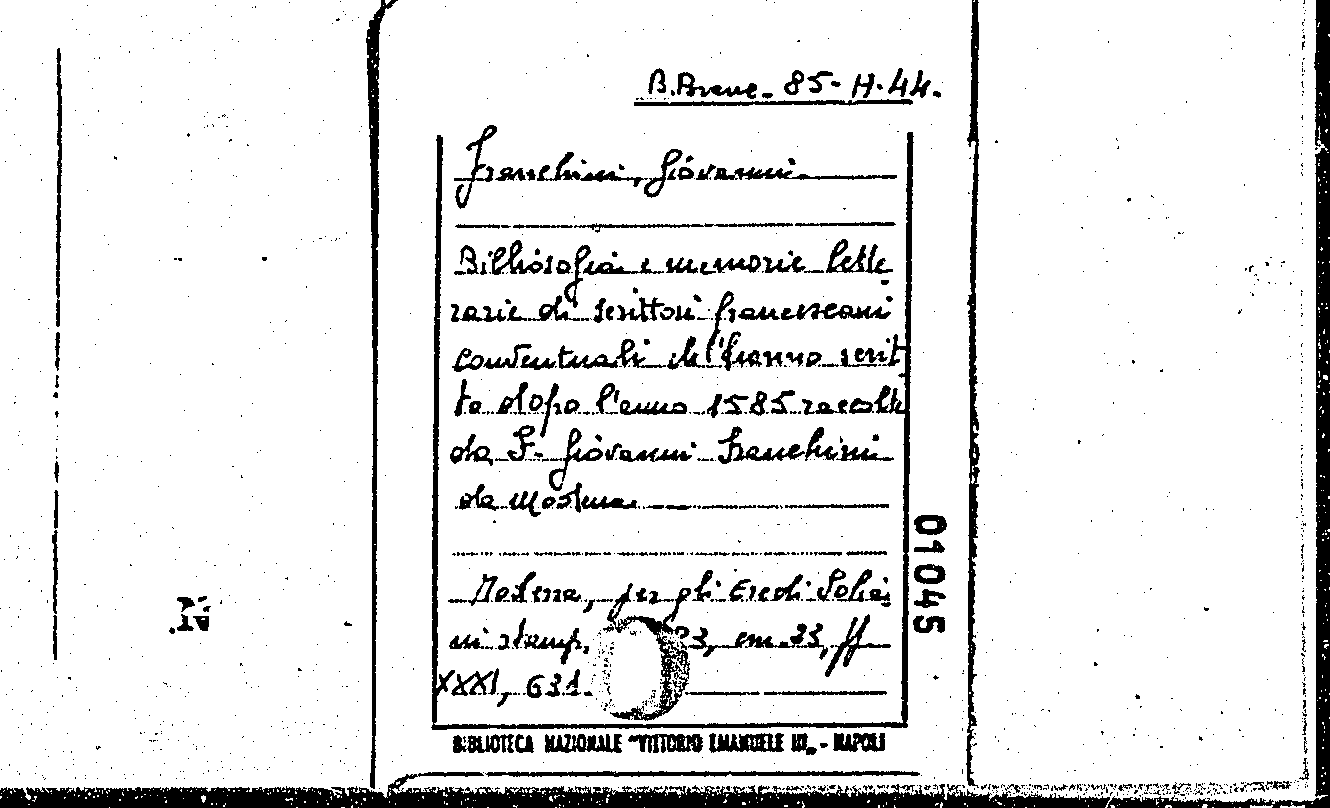 B. Branc. 85-H-44.
Franchini, Giovanni.
Bibliosofia e memorie lette
rarie di scrittori francescani
conventuali ch'hanno scrit
to dopo l'anno 1585 raccolte
da F. Giovanni Franchini
da Modena
Modena, per gli Eredi Solia
ni stamp. 93, cm. 33, ff
XXXI, 631.
BIBLIOTECA NAZIONALE "VITTORIO EMANUELE III" - NAPOLI
01045